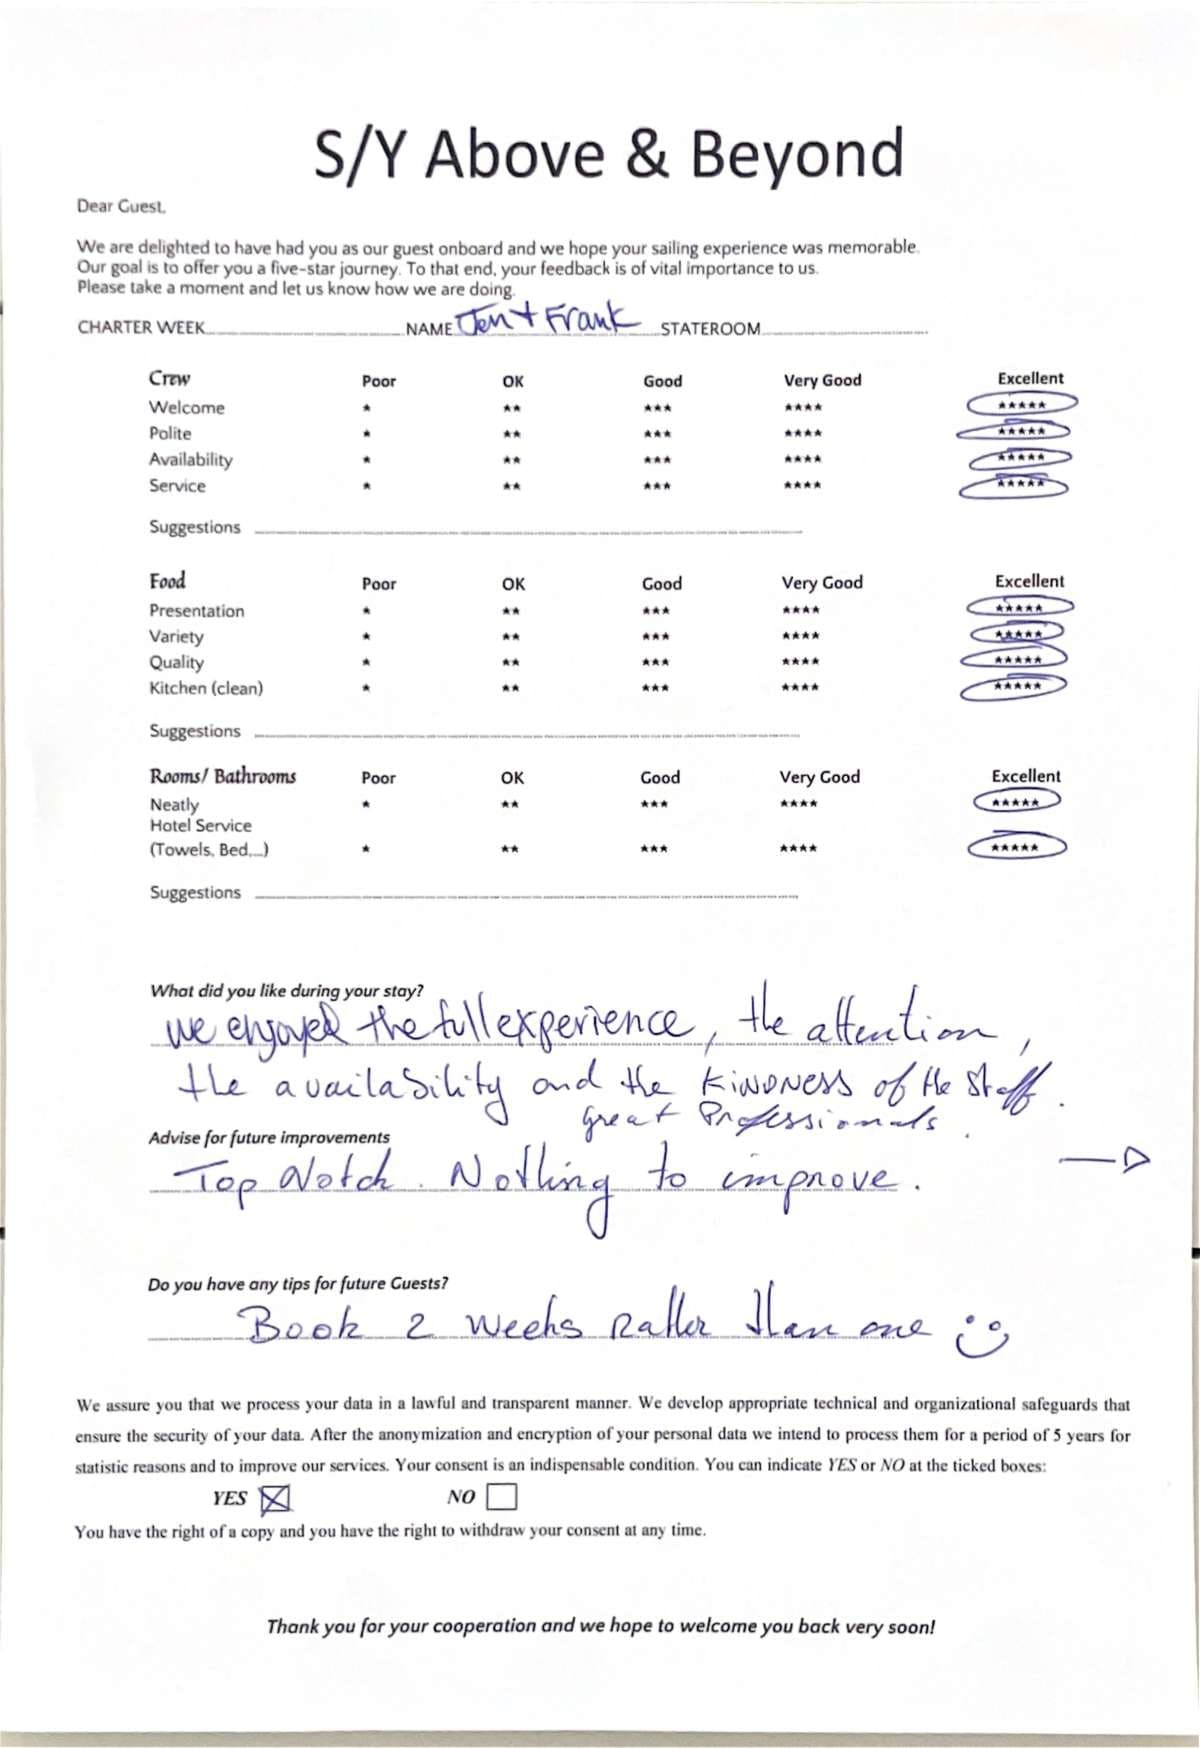 S/Y Above & Beyond
Dear Guest,
We are delighted to have had you as our guest onboard and we hope your sailing experience was memorable.
Our goal is to offer you a five-star journey. To that end, your feedback is of vital importance to us.
Please take a moment and let us know how we are doing.
CHARTER WEEK NAME Jen + Frank STATEROOM
Crew Poor OK Good Very Good Excellent
Welcome * ** *** **** *****
Polite * ** *** **** *****
Availability * ** *** **** *****
Service * ** *** **** *****
Suggestions
Food Poor OK Good Very Good Excellent
Presentation * ** *** **** *****
Variety * ** *** **** *****
Quality * ** *** **** *****
Kitchen (clean) * ** *** **** *****
Suggestions
Rooms/ Bathrooms Poor OK Good Very Good Excellent
Neatly * ** *** **** *****
Hotel Service
(Towels, Bed,...) * ** *** **** *****
Suggestions
What did you like during your stay?
we enjoyed the full experience, the attention,
the availability and the KINDNESS of the Staff.
great Professionals.
Advise for future improvements
Top Notch. Nothing to improve.
Do you have any tips for future Guests?
Book 2 weeks Rather than one
We assure you that we process your data in a lawful and transparent manner. We develop appropriate technical and organizational safeguards that
ensure the security of your data. After the anonymization and encryption of your personal data we intend to process them for a period of 5 years for
statistic reasons and to improve our services. Your consent is an indispensable condition. You can indicate YES or NO at the ticked boxes:
YES NO
You have the right of a copy and you have the right to withdraw your consent at any time.
Thank you for your cooperation and we hope to welcome you back very soon!